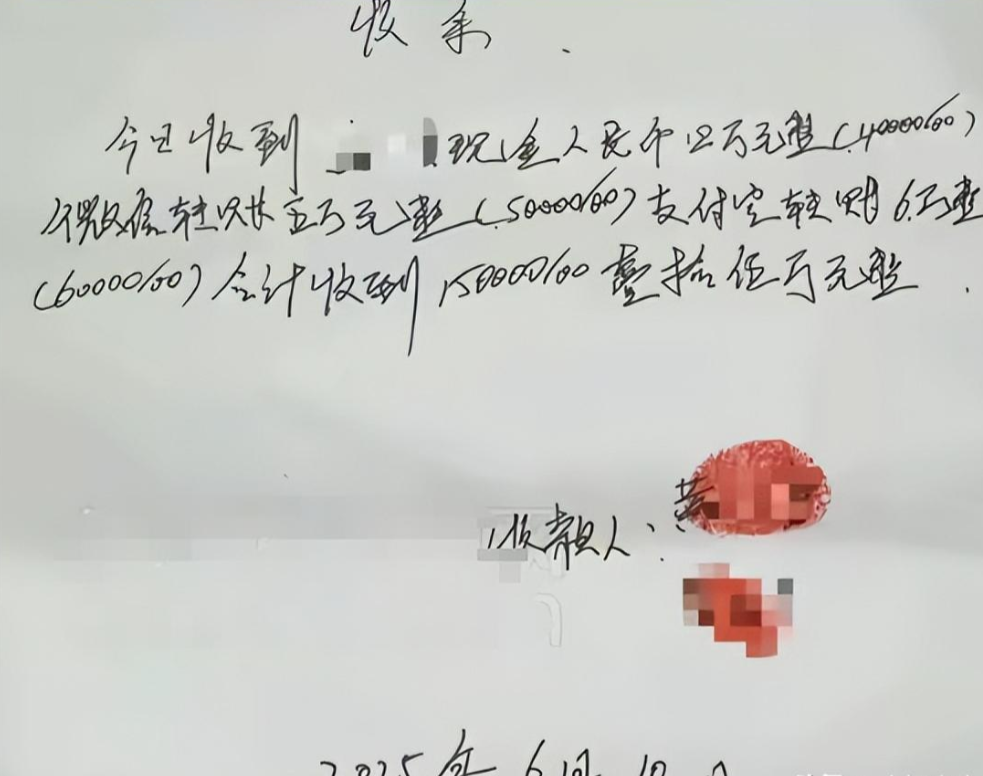 收条
今日收到 现金人民币四万元整(40000.00)
微信转账共五万元整(50000.00)支付宝转账6万整
(60000.00)合计收到150000.00壹拾伍万元整.
收款人:黄
2025年6月10日